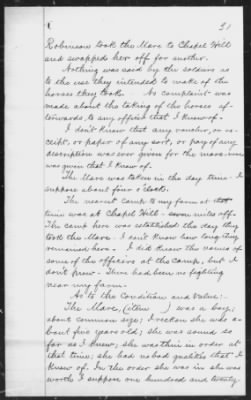 21
Robinson took the Mare to Chapel Hill
and swapped her off for another.
Nothing was said by the soldiers as
to the use they intended to make of the
horses they took. No complaint was
made about the taking of the horses af-
terwards to any official that I know of.
I don't know that any voucher, or re-
ceipt, or paper of any sort, or pay of any
description was ever given for the mare. none
was given that I know of.
The Mare was taken in the day time. I
suppose about four o'clock.
The nearest camp to my farm at that
time was at Chapel Hill - seven miles off.
The camp here was established the day they
took the Mare. I don't know how long they
remained here. I did know the names of
some of the officers at the camp, but I
don't know. There had been no fighting
near my farm.
As to the Condition and Value:-
The Mare, ( ) was a bay;
about common size; I reckon she was a-
bout five years old; she was sound so
far as I knew; she was thin in order at
that time; she had no bad qualities that I
knew of. In the order she was in she was
worth I suppose one hundred and twenty